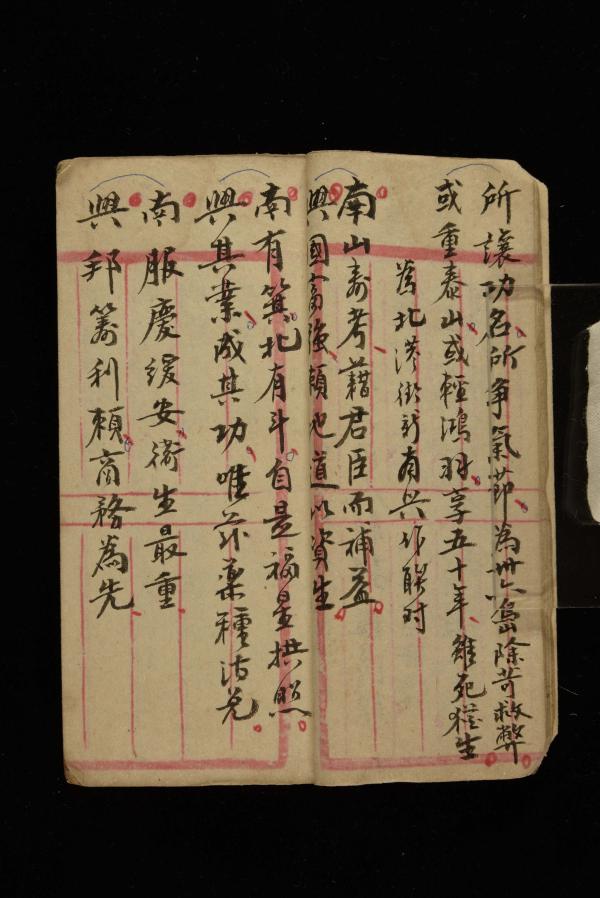 所讓功名所爭氣節為卅六島除苛救弊
或重泰山或輕鴻羽享五十年雖死猶生
為北洪街新南興作聯對
南山壽考藉君臣而補益
興國富強賴地道以資生
南有箕北有斗自是福星拱照
興其業成其功唯茲藥種
南服慶綏安衛生最重
興邦籌利賴商務為先